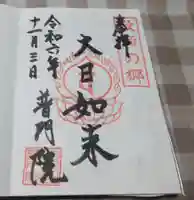 奉拝
大日如来
普門院
令和六年
十一月三日